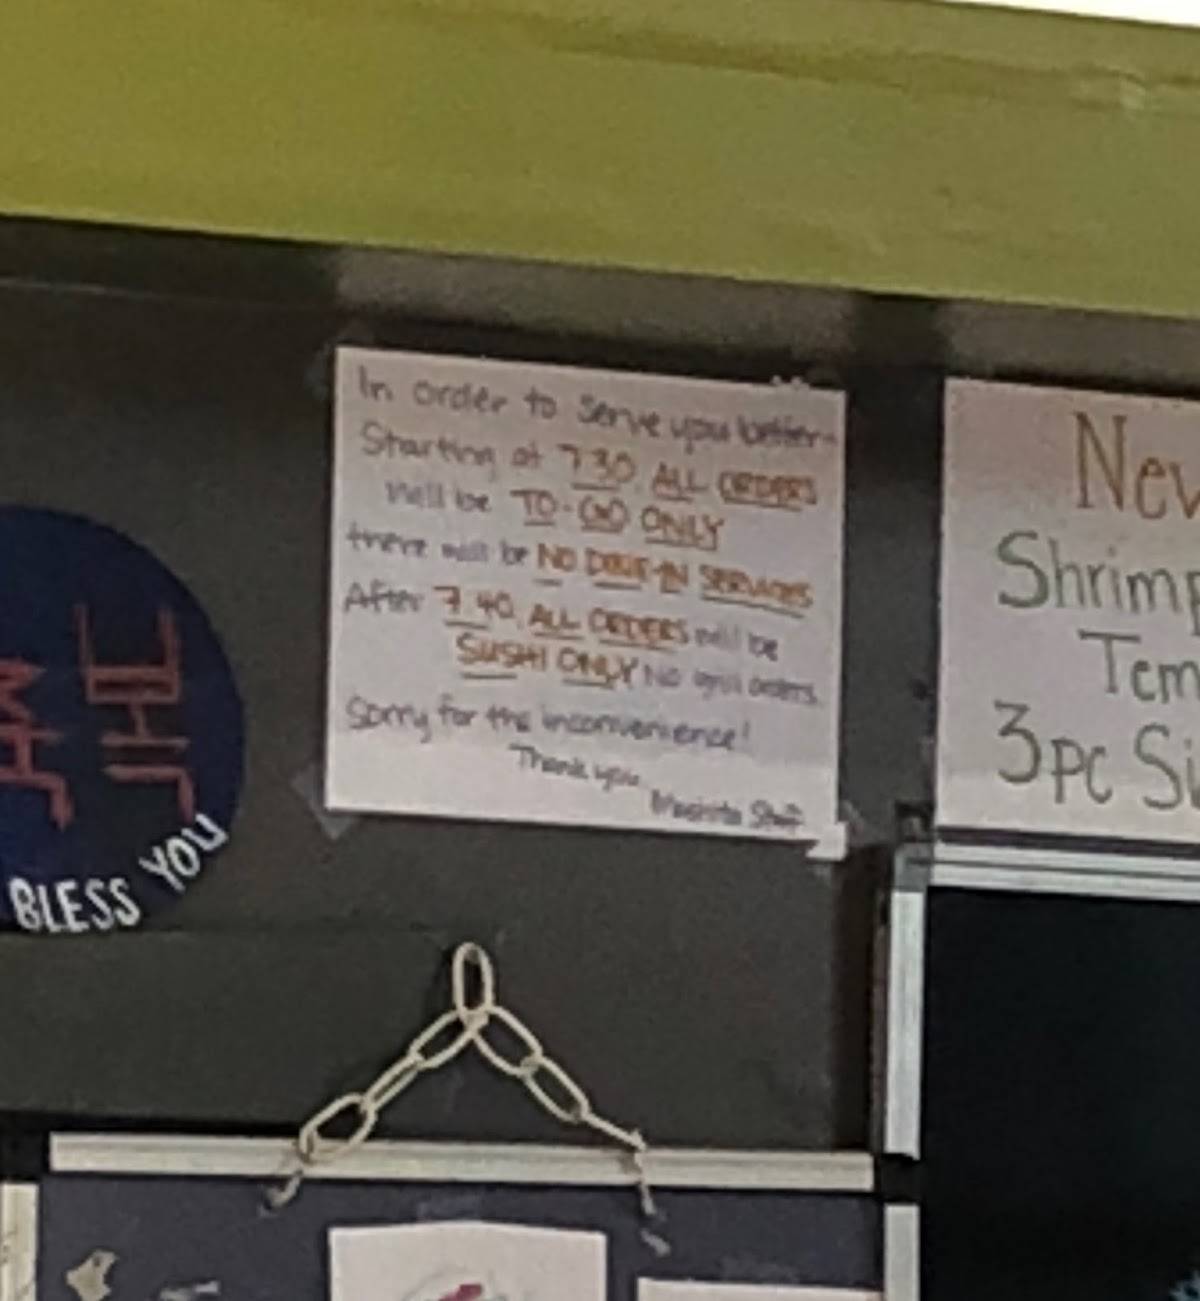 In order to serve you better-
Starting at 7:30 ALL ORDERS
will be TO-GO ONLY
there will be NO DINE-IN SERVICES
After 7:40 ALL ORDERS will be
SUSHI ONLY No grill orders.
Sorry for the inconvenience!
Thank you
Staff
New
Shrimp
Tem
3pc Si
BLESS YOU